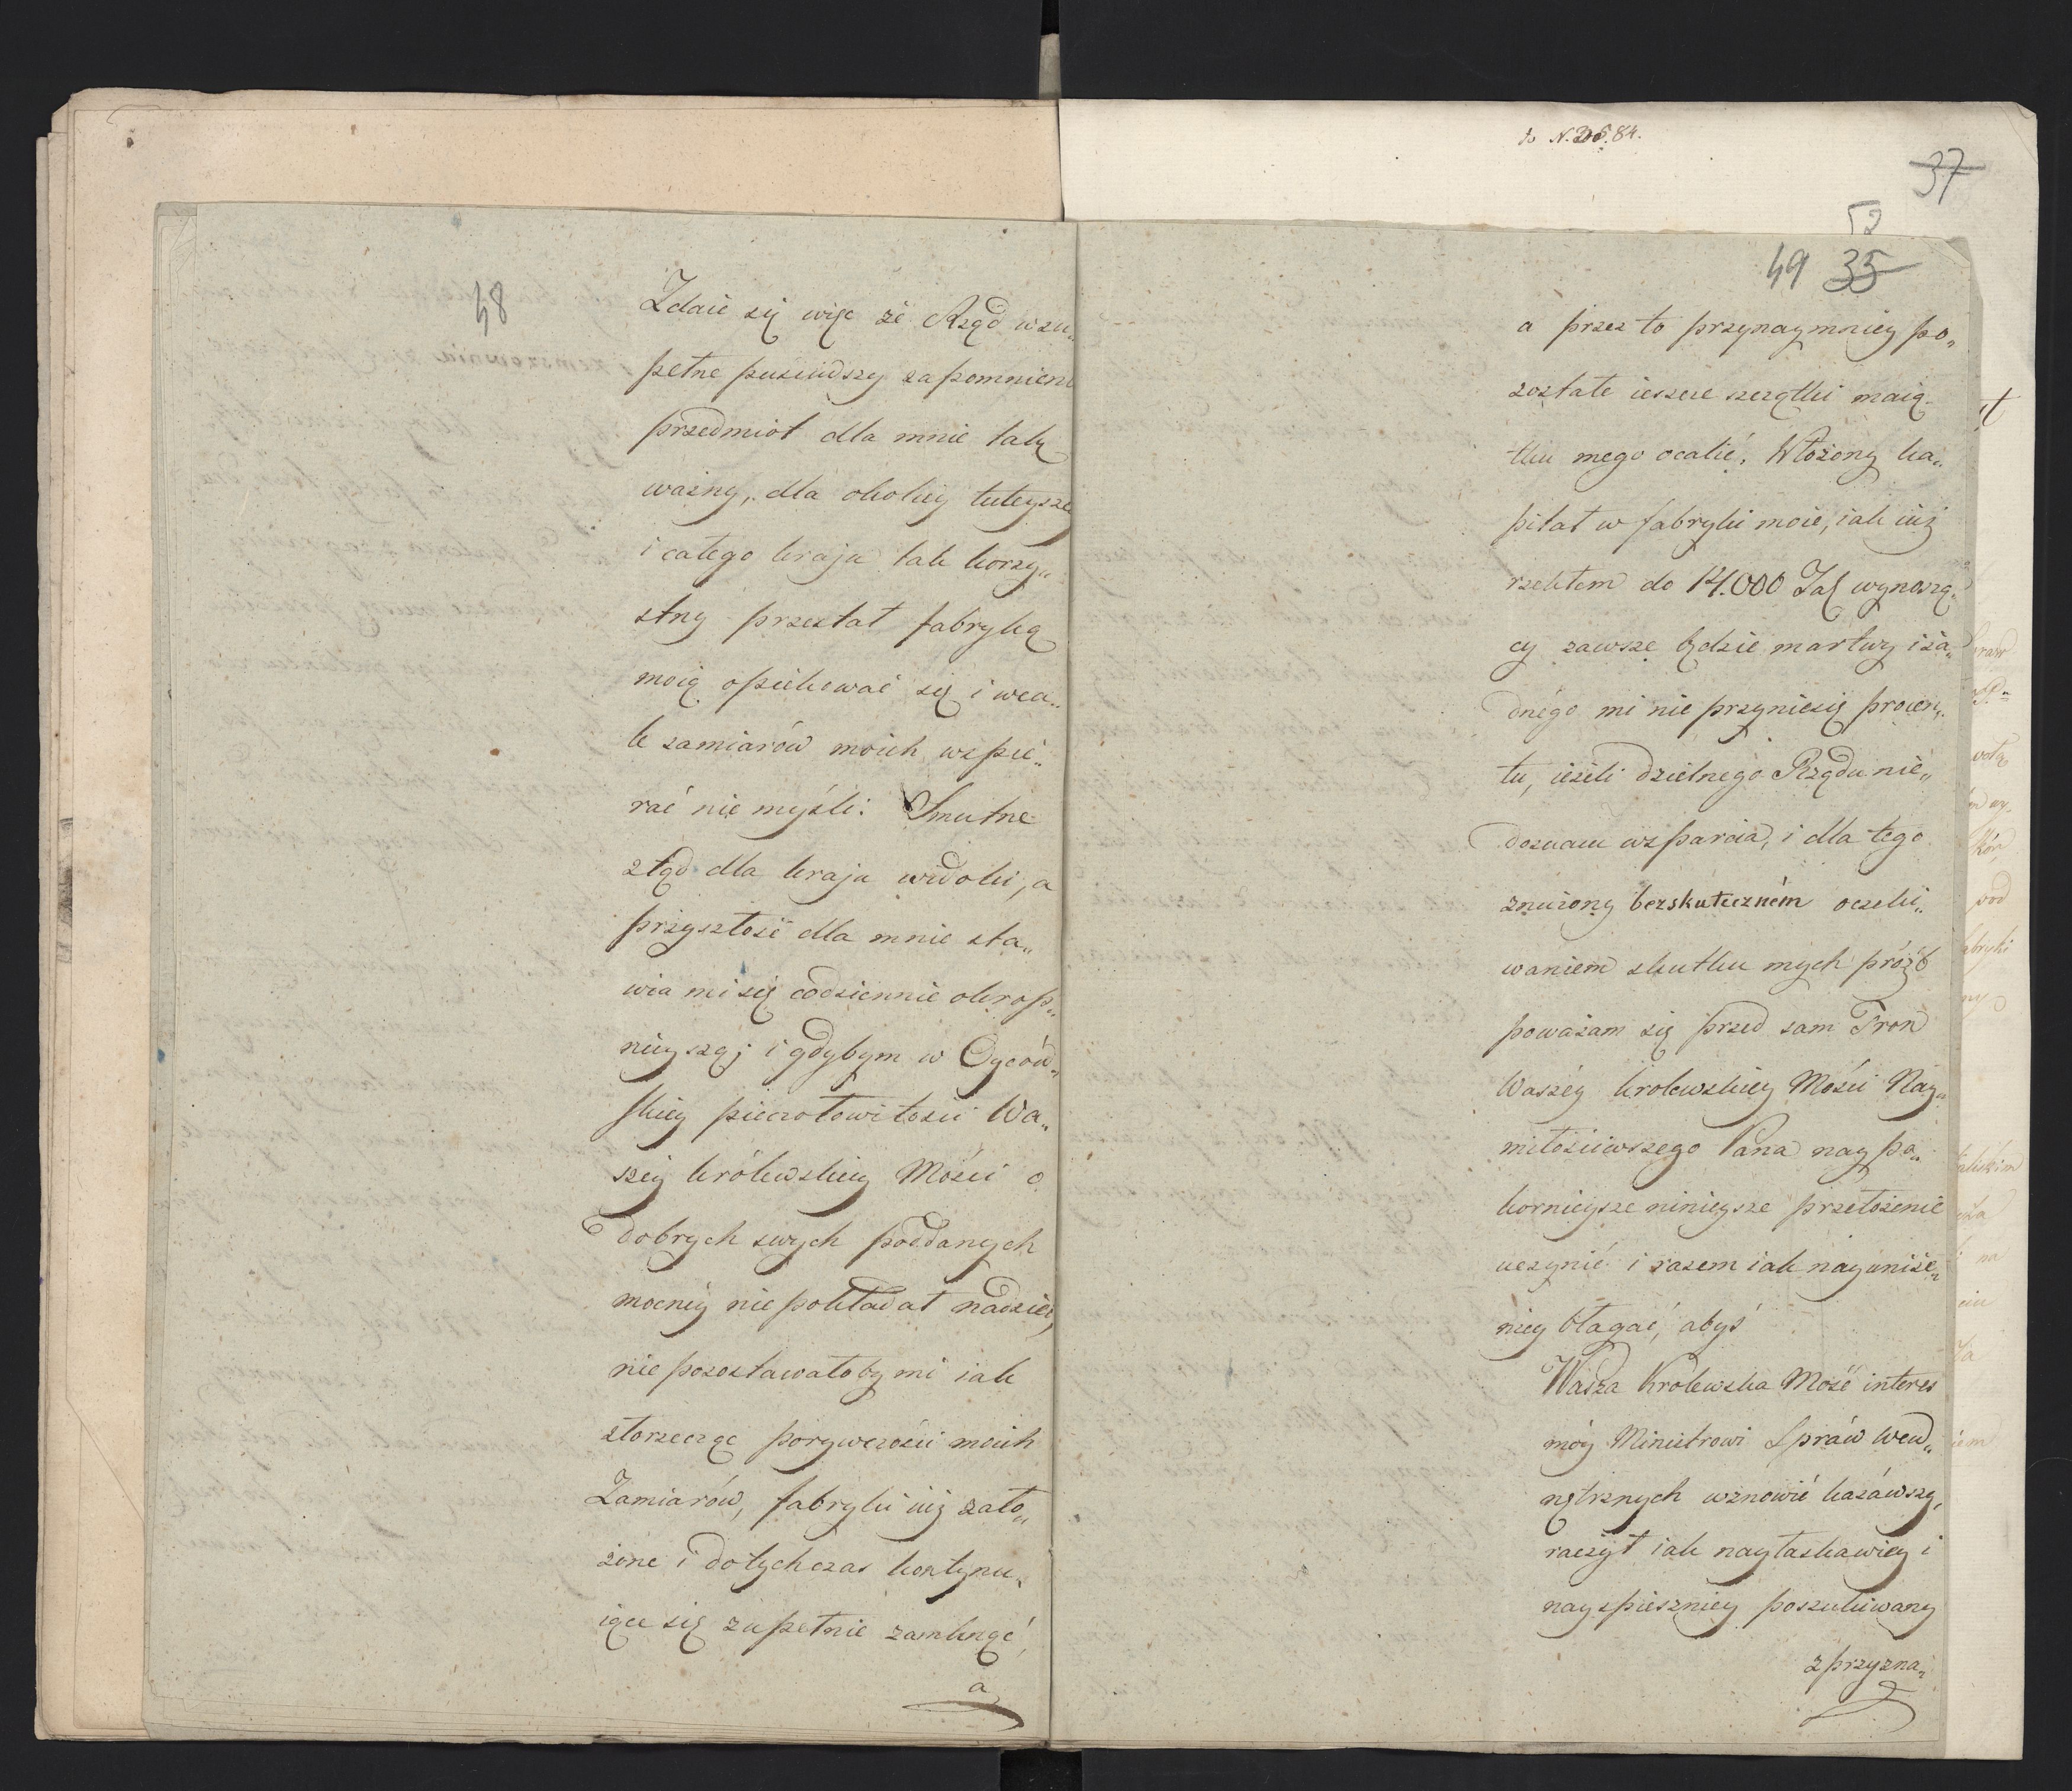 48
Zdaie się więc że Rząd w zu„
pełne puściwszy zapomnieni
przedmiot dla mnie tak
ważny, dla okolicy tuteysze
i całego kraju tak korzy„
stny przestał fabryką
moią opiekować się i wca„
le zamiarów moich wspie„
rać nie myśli: Smutne
ztąd dla kraju widoki, a
przyszłość dla mnie sta„
wia mi się codziennie okrop„
nieyszą; i gdybym w Oyców„
skiey pieczołowitości Wa„
szey królewskiey Mości o
dobrych swych poddanych
mocniey nie pokładał nadziei,
nie pozostawałoby mi iak
złorzecząc porywczości moich
Zamiarów, fabryki iuż zało„
żone i dotychczas kontynu„
iące się zupełnie zamknąć,
a
do N. 84.
37
52
49 35
a przez to przynaymniey po„
zostałe ieszcze szczątki maią„
tku mego ocalić. Włożony ka„
pitał w fabryki moie, iak iuż
rzekłem do 14.000 Tal wynoszą„
cy zawsze będzie martwy i ża„
dnego mi nie przyniesie procen„
tu, ieżeli dzielnego Rządu nie„
doznam wsparcia, i dla tego
znużony bezskuteczném oczeki„
waniem skutku mych próźb
poważam się przed sam Tron
Waszéy królewskiey Mości Nay„
miłościwszego Pana naypo„
kornieysze ninieysze przełożenie
uczynić i razem iak nayuniże„
niey błagać, abyś
Wasza Królewska Mość interes
móy Ministrowi Spraw Wew„
nętrznych wznowić kazawszy,
raczył iak nayłaskawiey i
nayspieszniey poszukiwany
z przyzna„